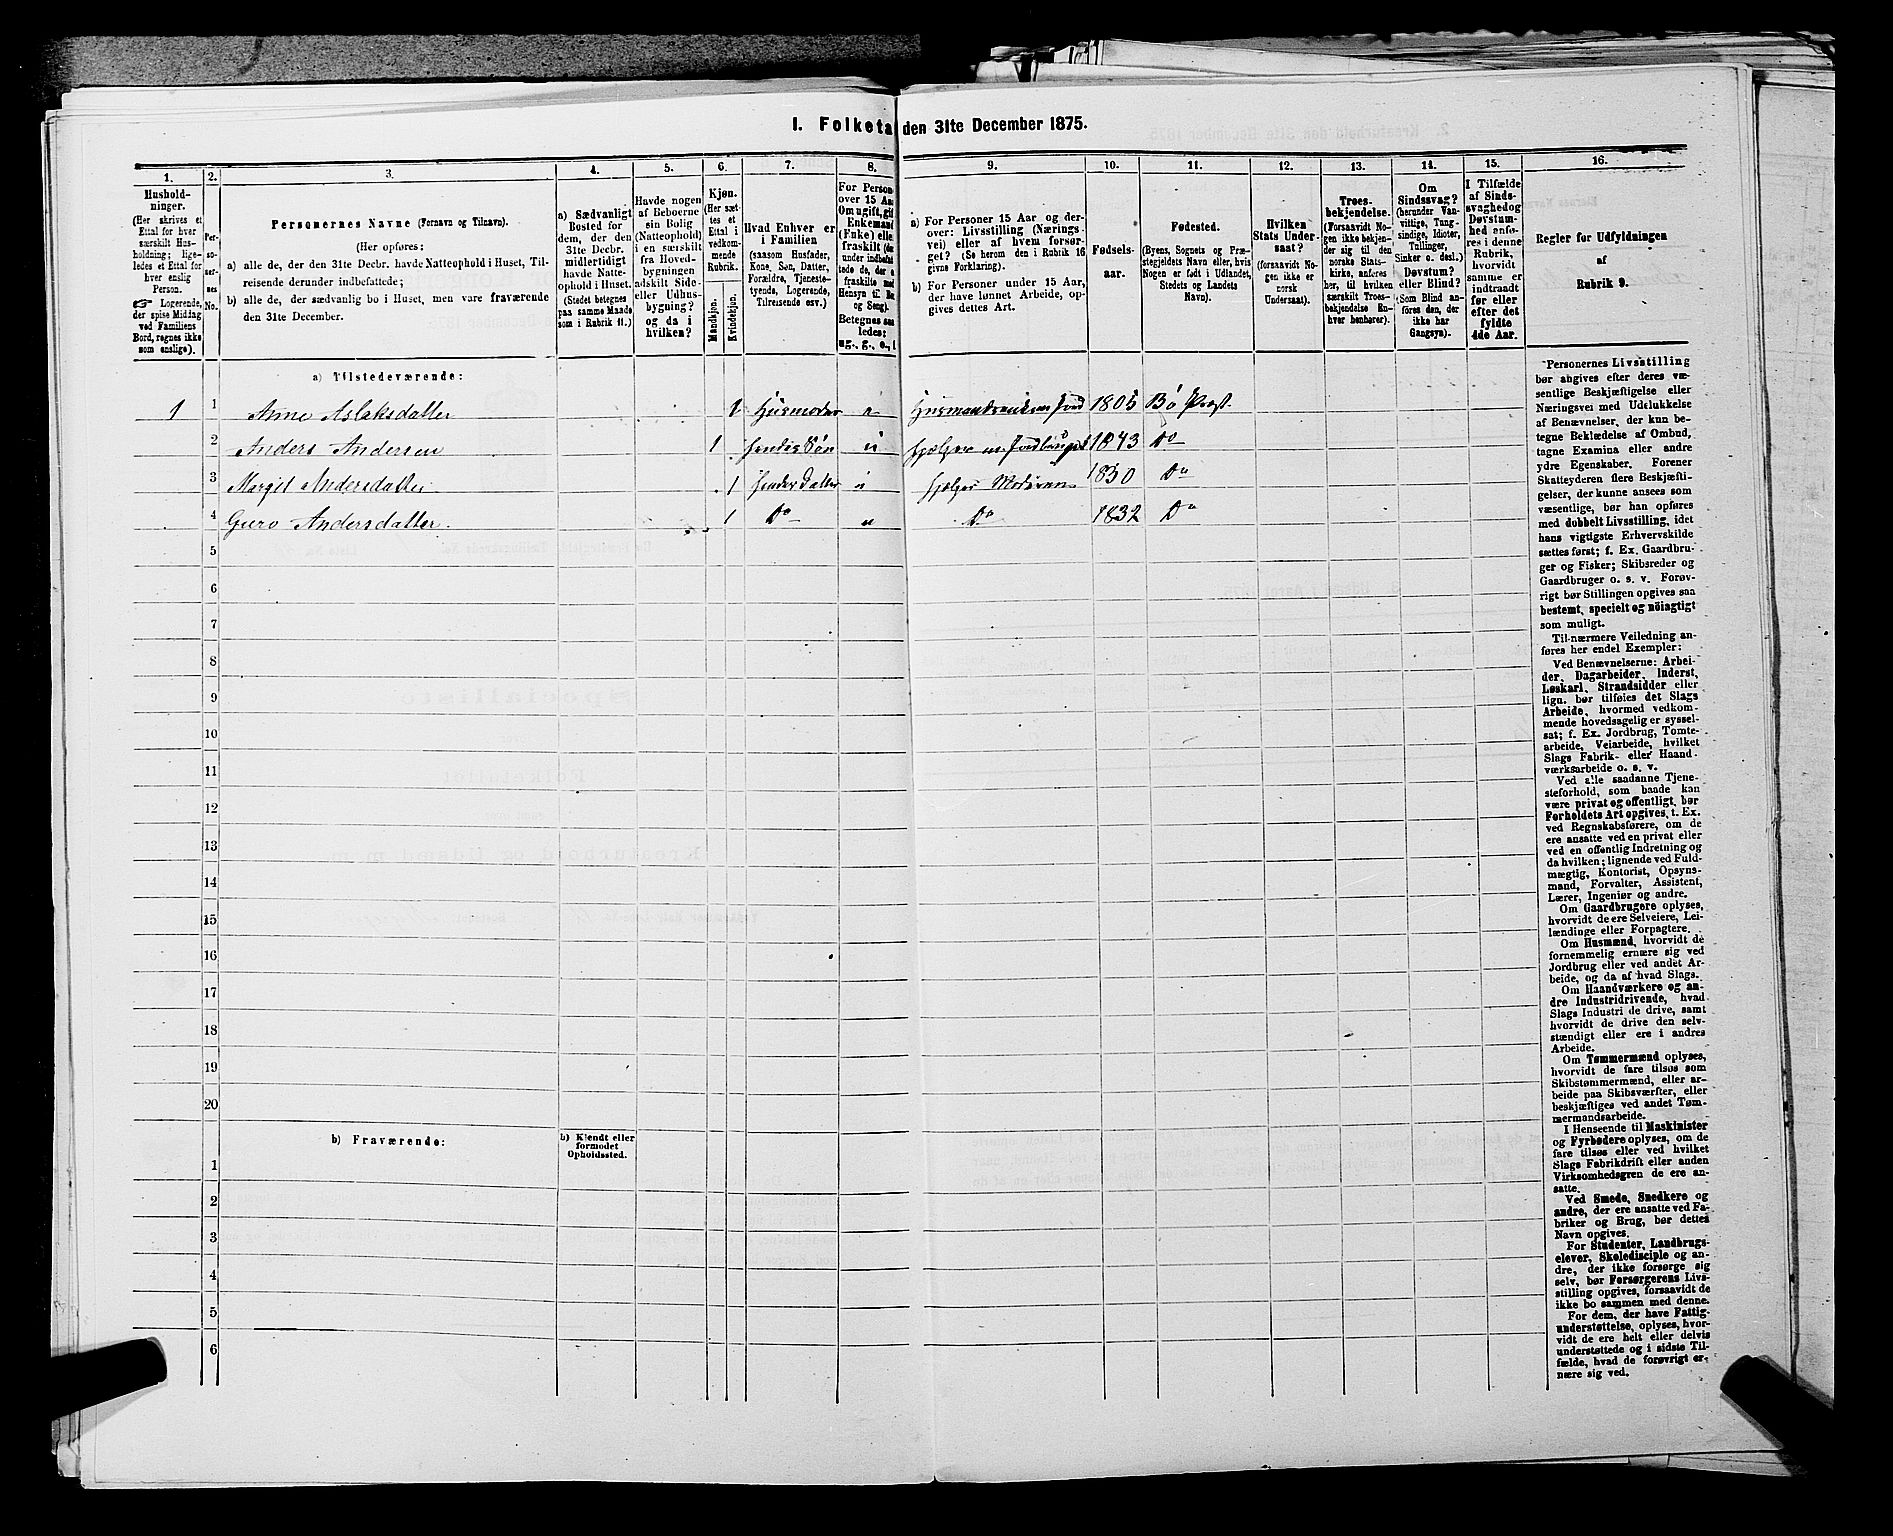 I. Folketa den 31te December 1875.
1.
2.
3.
4.
5.
6.
7.
8.
9.
10.
11.
12.
13.
14.
15.
16.
Hushold-
ninger.
(Her skrives et
Ettal for hver
særskilt Hus-
holdning; lige-
ledes et Ettal for
hver enslig
Person.
☞ Logerende,
der spise Middag
ved Familiens
Bord, regnes ikke
som enslige).
Per-
so-
ner-
nes
No.
Personernes Navne (Fornavn og Tilnavn).
(Her opføres:
a) alle de, der den 31te Decbr. havde Natteophold i Huset, Til-
reisende derunder indbefattede;
b) alle de, der sædvanlig bo i Huset, men vare fraværende
den 31te December.
a) Sædvanligt
Bosted for
dem, der den
31te Decbr.
midlertidigt
havde Natte-
ophold i Huset.
(Stedet betegnes
paa samme Maade
som i Rubrik 11.)
Havde nogen
af Beboerne
sin Bolig
(Natteophold)
i en særskilt
fra Hoved-
bygningen
adskilt Side-
eller Udhus-
bygning?
og da i
hvilken?
Kjøn.
(Her sæt-
tes et
Ettal i
vedkom-
mende
Rubrik.
Mandkjøn.
Kvindekjøn.
Hvad Enhver er
i Familien
(saasom Husfader,
Kone, Søn, Datter,
Forældre, Tjeneste-
tyende, Logerende,
Tilreisende osv.)
For Person
over 15 Aa
Om ugift, gif
Enkemand
(Enke) elle
fraskilt (de
under indbefat
tede de, der e
fraskilte med
Hensyn til Bo
og Seng).
Betegnes saa
ledes:
ug., g., e., f
a) For Personer 15 Aar og der-
over: Livsstilling (Nærings-
vei) eller af hvem forsør-
get? (Se herom den i Rubrik 16
givne Forklaring).
b) For Personer under 15 Aar,
der have lønnet Arbeide, op-
gives dettes Art.
Fødsels-
aar.
Fødested.
(Byens, Sognets og Præ-
stegjeldets Navn eller, hvis
Nogen er født i Udlandet,
Stedets og Landets
Navn).
Hvilken
Stats Under-
saat?
(forsaavidt No-
gen ikke er
norsk
Undersaat).
Troes-
bekjendelse.
(Forsaavidt No-
gen ikke bekjen-
der sig til den
norske Stats-
kirke, anføres
her, til hvilken
særskilt Troes-
bekjendelse En-
hver henhører).
Om
Sindssvag?
(herunder Van-
vittige, Tung-
sindige, Idioter,
Tullinger,
Sinker o. desl.).
Døvstum?
eller Blind?
(Som Blind an-
føres den, der
ikke har
Gangsyn).
I Tilfælde
af Sinds-
svaghed og
Døvstum-
hed anfø-
res i denne
Rubrik,
hvorvidt
samme er
indtraadt
før eller
efter det
fyldte
4de Aar.
Regler for Udfyldningen
af
Rubrik 9.
a) Tilstedeværende:
1 1 Anne Aslaksdatter 1 Husmoder 1805 Bø Præst.
2 Anders Andersen 1 hendes Søn 1843 Do
3 Margit Andersdatter 1 hendes Datter hjelper Moderen 1830 Do
4 Guro Andersdatter 1 Do Do 1832 Do
5
6
7
8
9
10
11
12
13
14
15
16
17
18
19
20
b) Fraværende:
b) Kjendt eller
formodet
Opholdssted.
1
2
3
4
5
6
Personernes Livsstilling
bør angives efter deres væ-
sentlige Beskjæftigelse eller
Næringsvei med Udelukkelse
af Benævnelser, der kun be-
tegne Beklædelse af Ombud,
tagne Examina eller andre
ydre Egenskaber. Forener
Skatteyderen flere Beskjæfti-
gelser, der kunne ansees som
væsentlige, bør han opføres
med dobbelt Livsstilling, idet
hans vigtigste Erhvervskilde
sættes først; f. Ex. Gaardbru-
ger og Fisker; Skibsreder og
Gaardbruger o. s. v. Forøv-
rigt bør Stillingen opgives saa
bestemt, specielt og nøiagtigt
som muligt.
Til nærmere Veiledning an-
føres her endel Exempler:
Ved Benævnelserne: Arbei-
der, Dagarbeider, Inderst,
Løskarl, Strandsidder eller
lign. bør tilføies det Slags
Arbeide, hvormed vedkom-
mende hovedsagelig er syssel-
sat; f. Ex. Jordbrug, Tomte-
arbeide, Veiarbeide, hvilket
Slags Fabrik- eller Haand-
værksarbeide o. s. v.
Ved alle saadanne Tjene-
steforhold, som baade kan
være privat og offentligt, bør
Forholdets Art opgives, t. Ex.
ved Regnskabsførere, om de
ere ansatte ved en privat eller
ved en offentlig Indretning og
da hvilken; lignende ved Fuld-
mægtig, Kontorist, Opsyns-
mand, Forvalter, Assistent,
Lærer, Ingeniør og andre.
Om Gaardbrugere oplyses,
hvorvidt de ere Selveiere, Lei-
lændinge eller Forpagtere.
Om Husmænd, hvorvidt de
fornemmelig ernære sig ved
Jordbrug eller ved andet Ar-
beide, og da af hvad Slags.
Om Haandværkere og an-
dre Industridrivende, hvad
Slags Industri de drive, samt
hvorvidt de drive den selv-
stændigt eller ere i andres
Arbeide.
Om Tømmermænd oplyses,
hvorvidt de fare tilsøs som
Skibstømmermænd, eller ar-
beide paa Skibsværfter, eller
beskjæftiges ved andet Tøm-
mermandsarbeide.
I Henseende til Maskinister
og Fyrbødere oplyses, om de
fare tilsøs eller ved hvilket
Slags Fabrikdrift eller anden
Virksomhedsgren de ere an-
satte.
Ved Smede, Snedkere og
andre, der ere ansatte ved Fa-
briker og Brug, bør dettes
Navn opgives.
For Studenter, Landbrugs-
elever, Skoledisciple og an-
dre, der ikke forsørge sig
selv, bør Forsørgerens Livs-
stilling opgives, forsaavidt de
ikke bo sammen med denne.
For dem, der have Fattig-
understøttelse, oplyses, hvor-
vidt de ere helt eller delvis
understøttede og i sidste Til-
fælde, hvad de forøvrigt er-
nære sig ved.